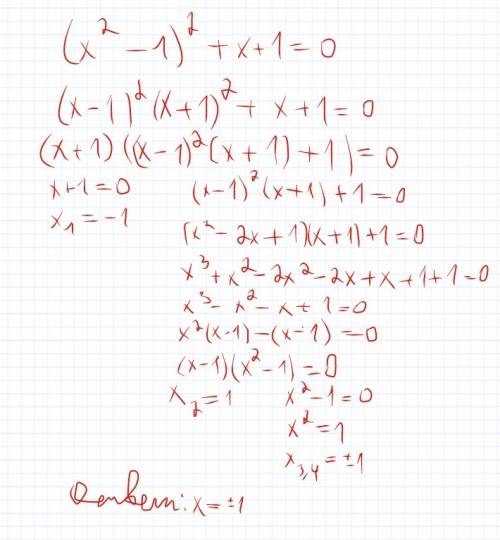 (x² - 1)² + x + 1 = 0
(x - 1)² (x + 1)² + x + 1 = 0
(x + 1) ((x - 1)² (x + 1) + 1) = 0
x + 1 = 0 (x - 1)² (x + 1) + 1 = 0
x₁ = -1
(x² - 2x + 1)(x + 1) + 1 = 0
x³ + x² - 2x² - 2x + x + 1 + 1 = 0
x³ - x² - x + 1 = 0
x² (x - 1) - (x - 1) = 0
(x - 1)(x² - 1) = 0
x₂ = 1 x² - 1 = 0
x² = 1
x₃,₄ = ±1
Ответ: x = ±1